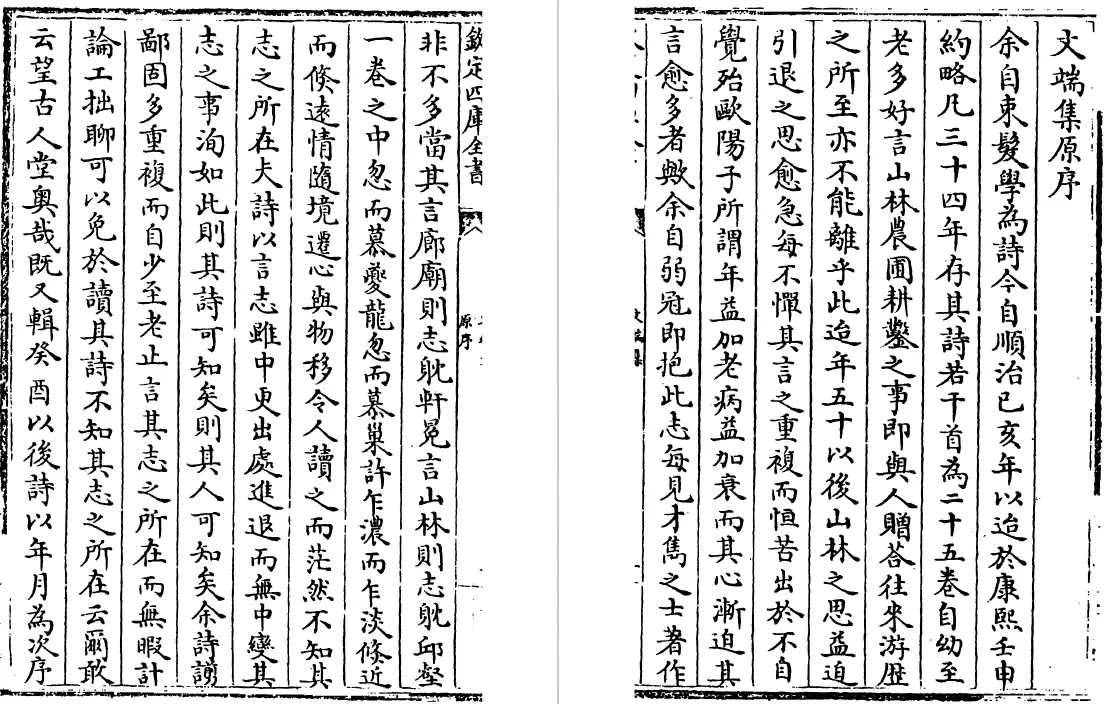 文端集原序
余自束髮學為詩今自順治己亥年以迨於康熙壬申
約略凡三十四年存其詩若干首為二十五巻自幼至
老多好言山林農圃耕鑿之事即與人贈荅往來游歴
之所至亦不能離乎此迨年五十以後山林之思益迫
引退之思愈急每不憚其言之重複而恒苦出於不自
覺殆歐陽子所謂年益加老病益加衰而其心漸迫其
言愈多者歟余自弱冠即抱此志每見才雋之士著作
欽定四庫全書
原序
非不多當其言廊廟則志躭軒冕言山林則志躭邱壑
一巻之中忽而慕夔龍忽而慕巢許乍濃而乍淡倐近
而倐遠情隨境遷心與物移令人讀之而茫然不知其
志之所在夫詩以言志雖中更出處進退而無中變其
志之事洵如此則其詩可知矣則其人可知矣余詩謭
鄙固多重複而自少至老止言其志之所在而無暇計
論工拙聊可以免於讀其詩不知其志之所在云爾敢
云望古人堂奥哉既又輯癸酉以後詩以年月為次序